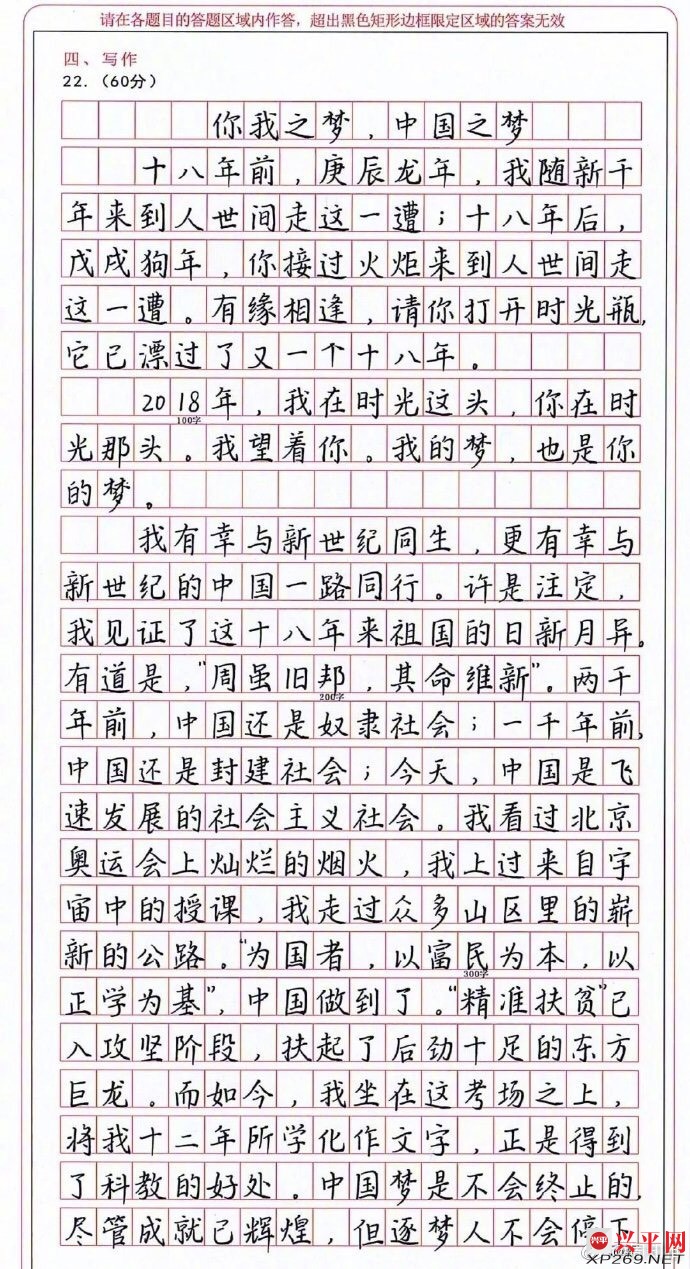 请在各题目的答题区域内作答，超出黑色矩形边框限定区域的答案无效
四、写作
22.（60分）
你我之梦，中国之梦
十八年前，庚辰龙年，我随新千
年来到人世间走这一遭；十八年后，
戊戌狗年，你接过火炬来到人世间走
这一遭。有缘相逢，请你打开时光瓶，
它已漂过了又一个十八年。
2018年，我在时光这头，你在时
100字
光那头。我望着你。我的梦，也是你
的梦。
我有幸与新世纪同生，更有幸与
新世纪的中国一路同行。许是注定，
我见证了这十八年来祖国的日新月异。
有道是，“周虽旧邦，其命维新”。两千
200字
年前，中国还是奴隶社会；一千年前，
中国还是封建社会；今天，中国是飞
速发展的社会主义社会。我看过北京
奥运会上灿烂的烟火，我上过来自宇
宙中的授课，我走过众多山区里的崭
新的公路。“为国者，以富民为本，以
300字
正学为基”，中国做到了。“精准扶贫”已
入攻坚阶段，扶起了后劲十足的东方
巨龙。而如今，我坐在这考场之上，
将我十二年所学化作文字，正是得到
了科教的好处。中国梦是不会终止的，
尽管成就已辉煌，但逐梦人不会停下
兴平网
XP269.NET